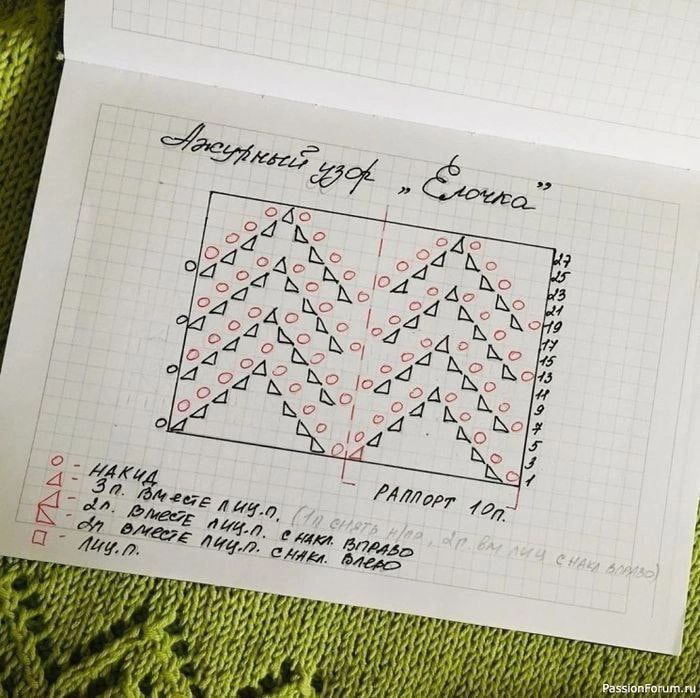 Ажурный узор „Ёлочка"
27
25
23
21
19
17
15
13
11
9
7
5
3
1
РАППОРТ 10п.
- НАКИД
- 3п. ВМЕСТЕ ЛИЦ.П. (1п СНЯТЬ н/пр, 2п. вм лиц с накл вправо)
- 2п. ВМЕСТЕ ЛИЦ.П. С НАКЛ. ВПРАВО
- 2п ВМЕСТЕ ЛИЦ.П. С НАКЛ. ВЛЕВО
- ЛИЦ.П.
PassionForum.ru